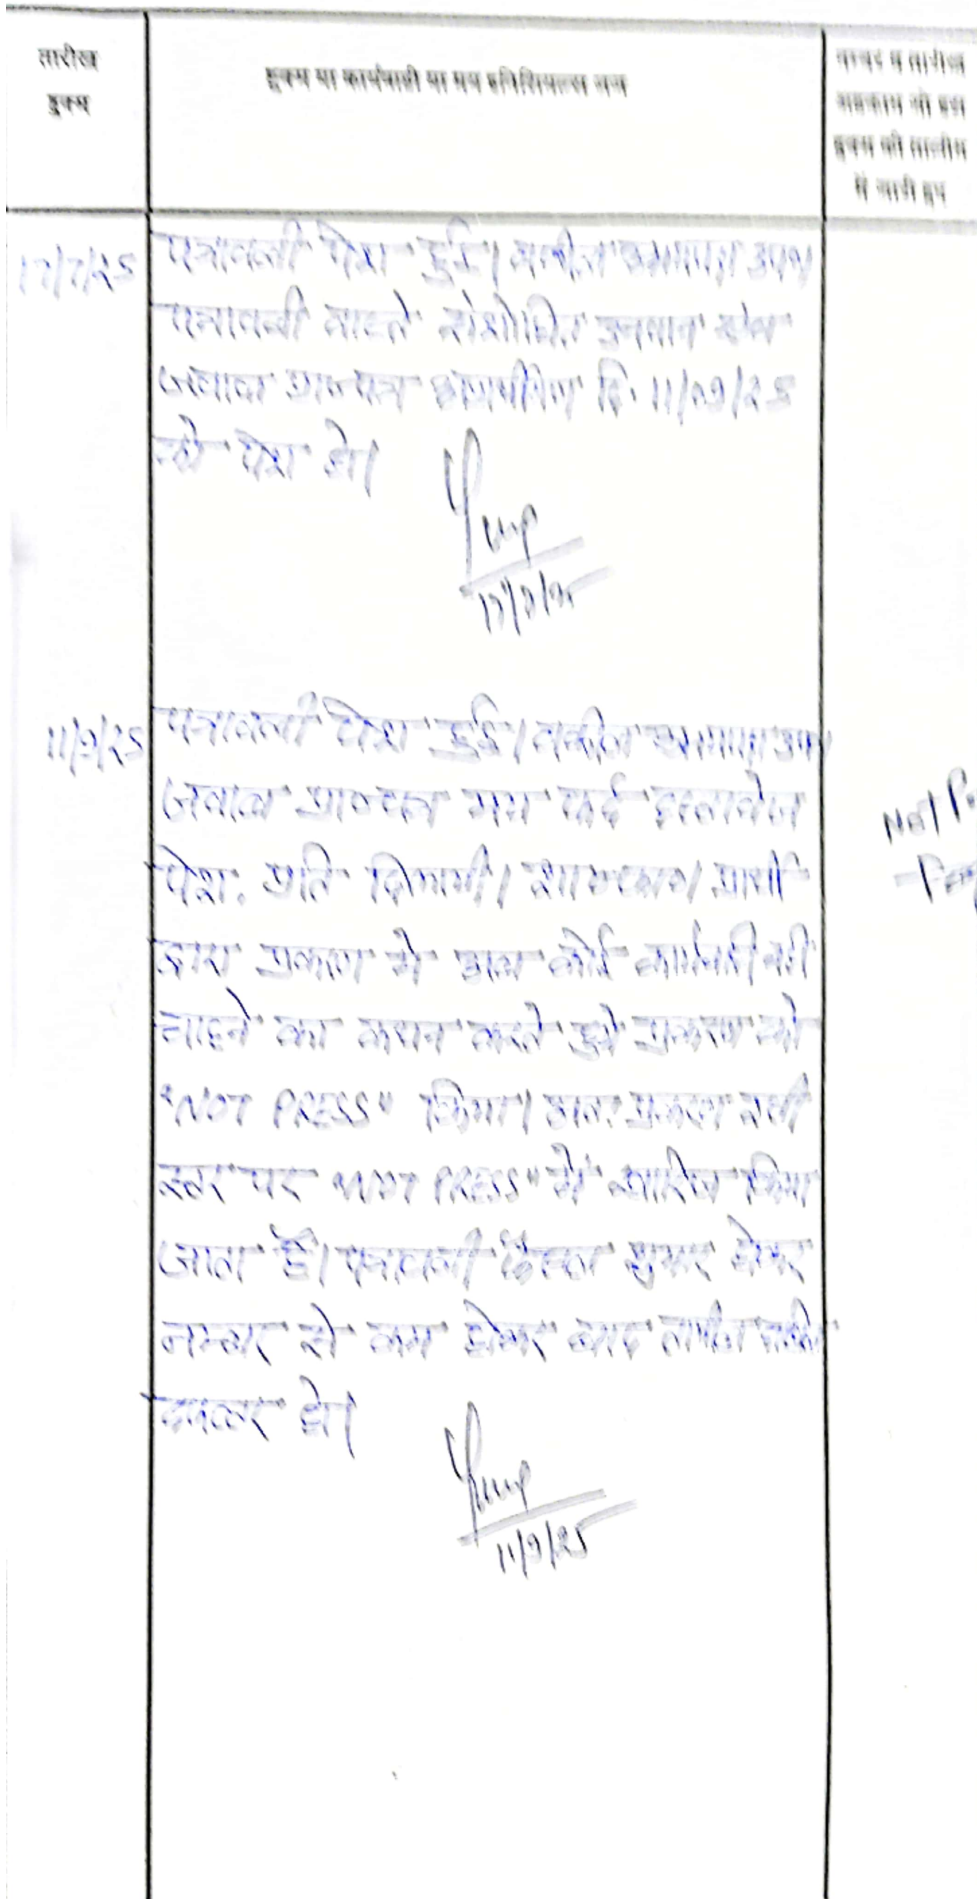 तारीख
हुक्म
हुक्म या कार्यवाही या मय इनिशियल्स जज
नम्बर व तारीख
अहकाम जो इस
हुक्म की तामील
में जारी हुए
17/7/25
पत्रावली पेश हुई। वकील उभयपक्ष उप०
पत्रावली वास्ते संशोधित उनवान
जवाब प्रा०पत्र दि. 11/09/25
को पेश हो।
17/7/25
11/9/25
पत्रावली पेश हुई। वकील उभयपक्ष उप०
जवाब प्रा०पत्र मय फर्द दस्तावेज
पेश. प्रति दिलायी। प्रार्थी
द्वारा प्रकरण मे अब कोई कार्यवाही नहीं
चाहने का कथन करते हुये प्रकरण को
"NOT PRESS" किया। अतः प्रकरण इसी
स्तर पर "NOT PRESS" में खारिज किया
जाता है। पत्रावली फैसल शुमार होकर
नम्बर से कम होकर बाद तामील दाखिल
दफ्तर हो।
11/9/25